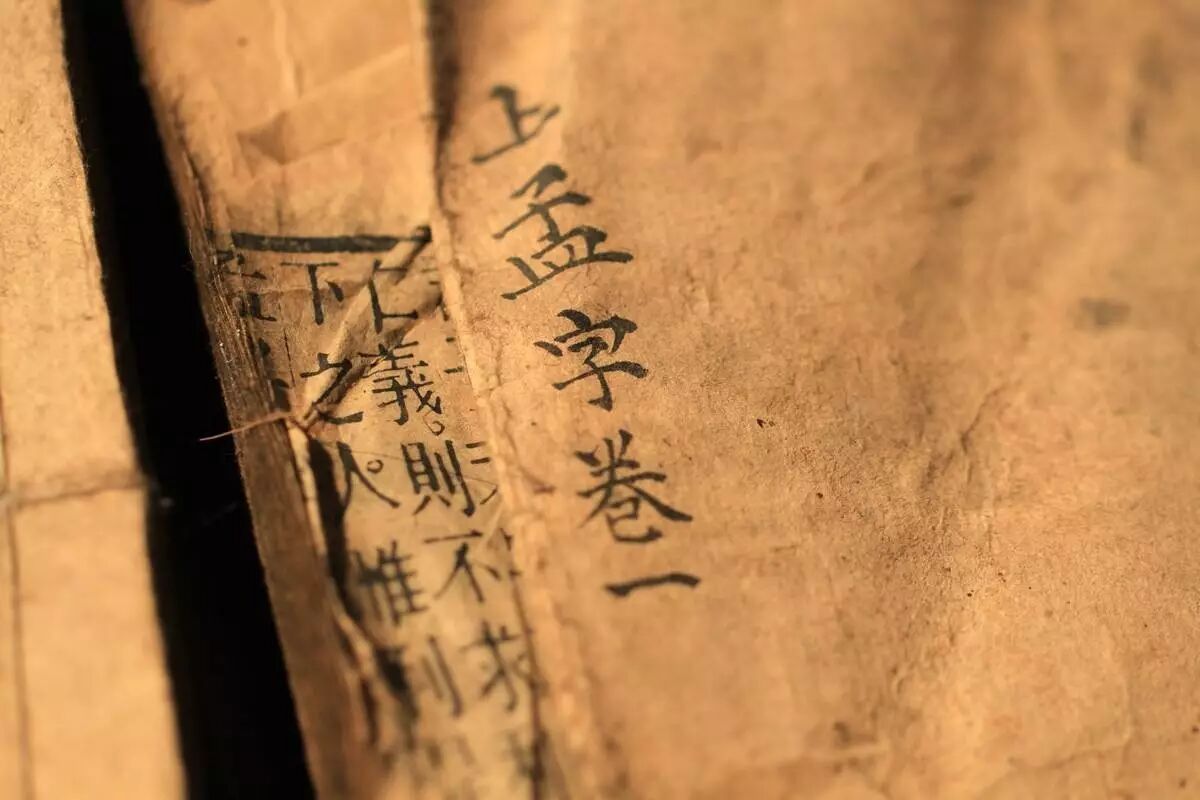 上孟字卷一
仁義。則不求
下之人。惟利